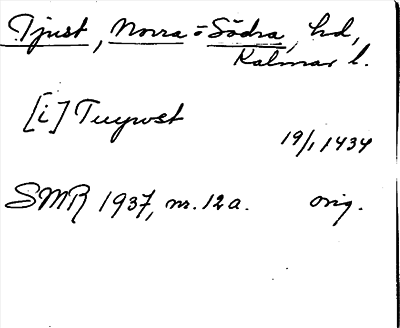 Tjust, Norra = Södra, hd,
Kalmar l.
[i] Tuywst
19/1 1434
SMR 1937, nr. 12a. orig.